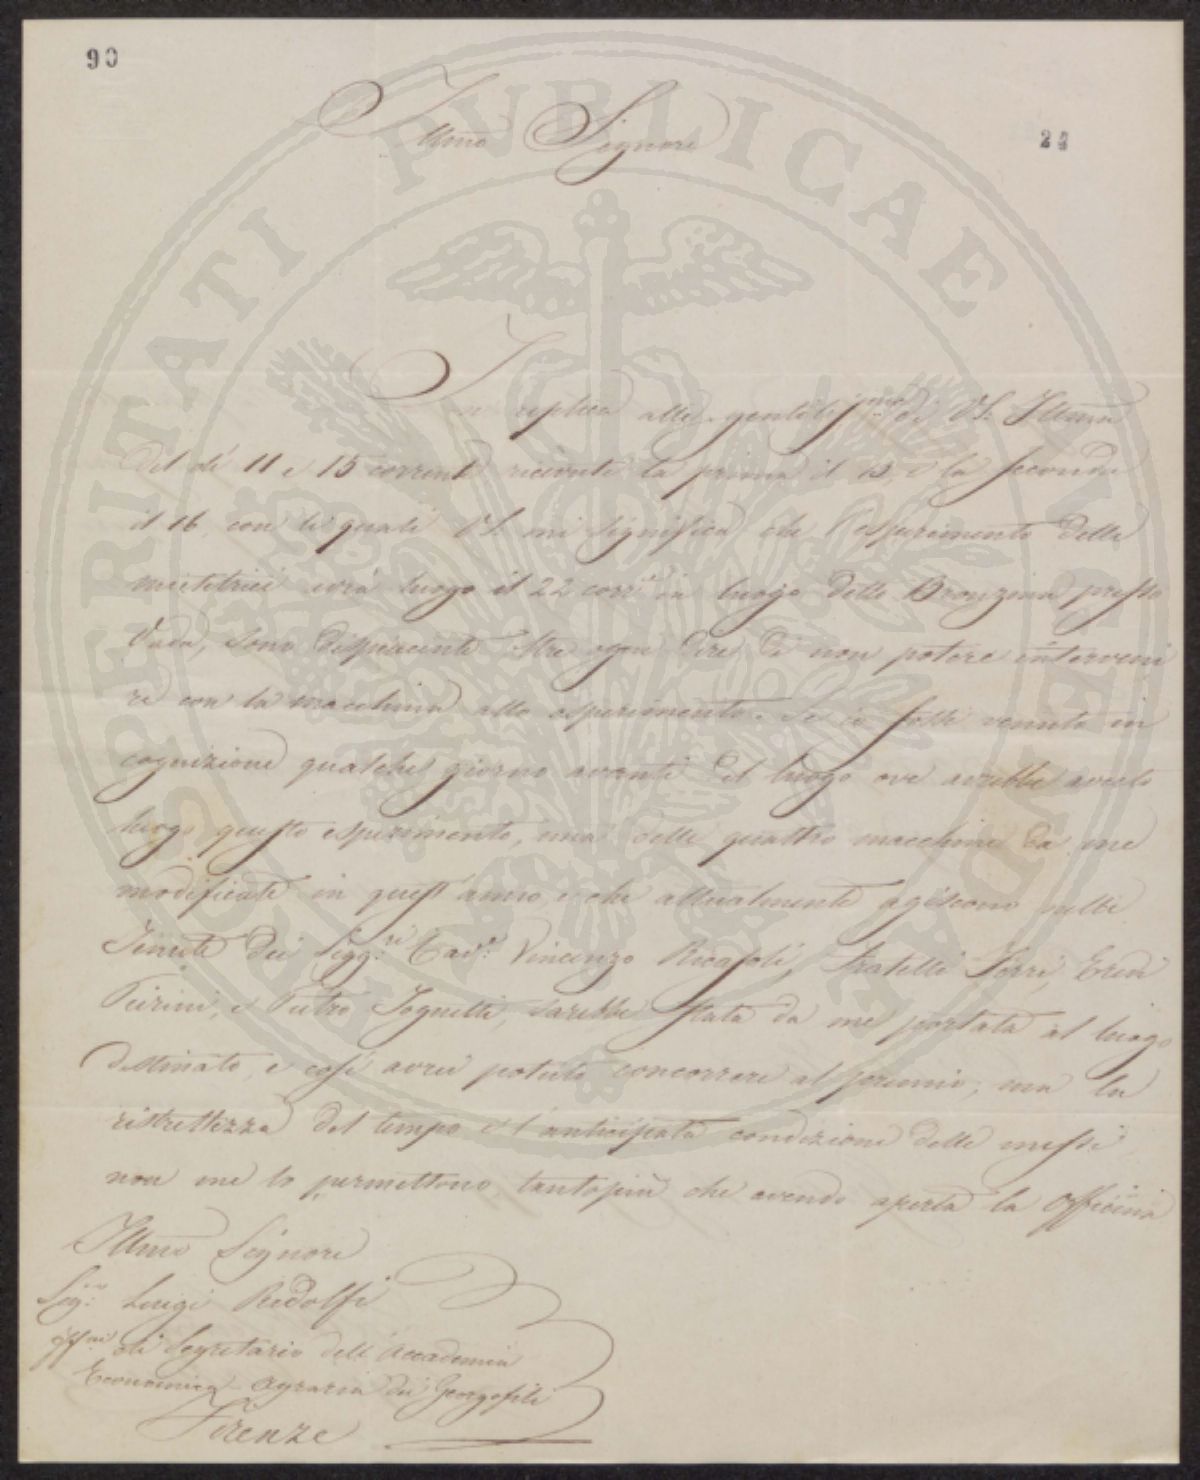 90
24
Illmo Signore
In replica alle gentiliss.me di VS. Illma
del dì 11 e 15 corrente ricevute la prima il 13, e la seconda
il 16, con le quali VS. mi significa che l'esperimento delle
mietitrici avrà luogo il 22 corr.e in luogo detto Bronzina presso
Vada, sono dispiacente oltre ogni dire di non potere interveni
re con la macchina allo esperimento. Se io fossi venuto in
cognizione qualche giorno avanti del luogo ove avrebbe avuto
luogo questo esperimento, una delle quattro macchine da me
modificate in quest'anno e che attualmente agiscono nelle
Tenute dei Sigg.ri Cav.e Vincenzo Ricasoli, Fratelli Ferri, Eredi
e Pietro Tognetti, sarebbe stata da me portata al luogo
destinato, e così avrei potuto concorrere al premio; ma la
ristrettezza del tempo e l'anticipata condizione delle messi
non me lo permettono, tantopiù che avendo aperta la Officina
Illmo Signore
Sig.re Luigi Ridolfi
ff.ni di Segretario dell'Accademia
Economica-Agraria dei Georgofili
Firenze
PROSPERITATI PUBLICAE AUGENDAE